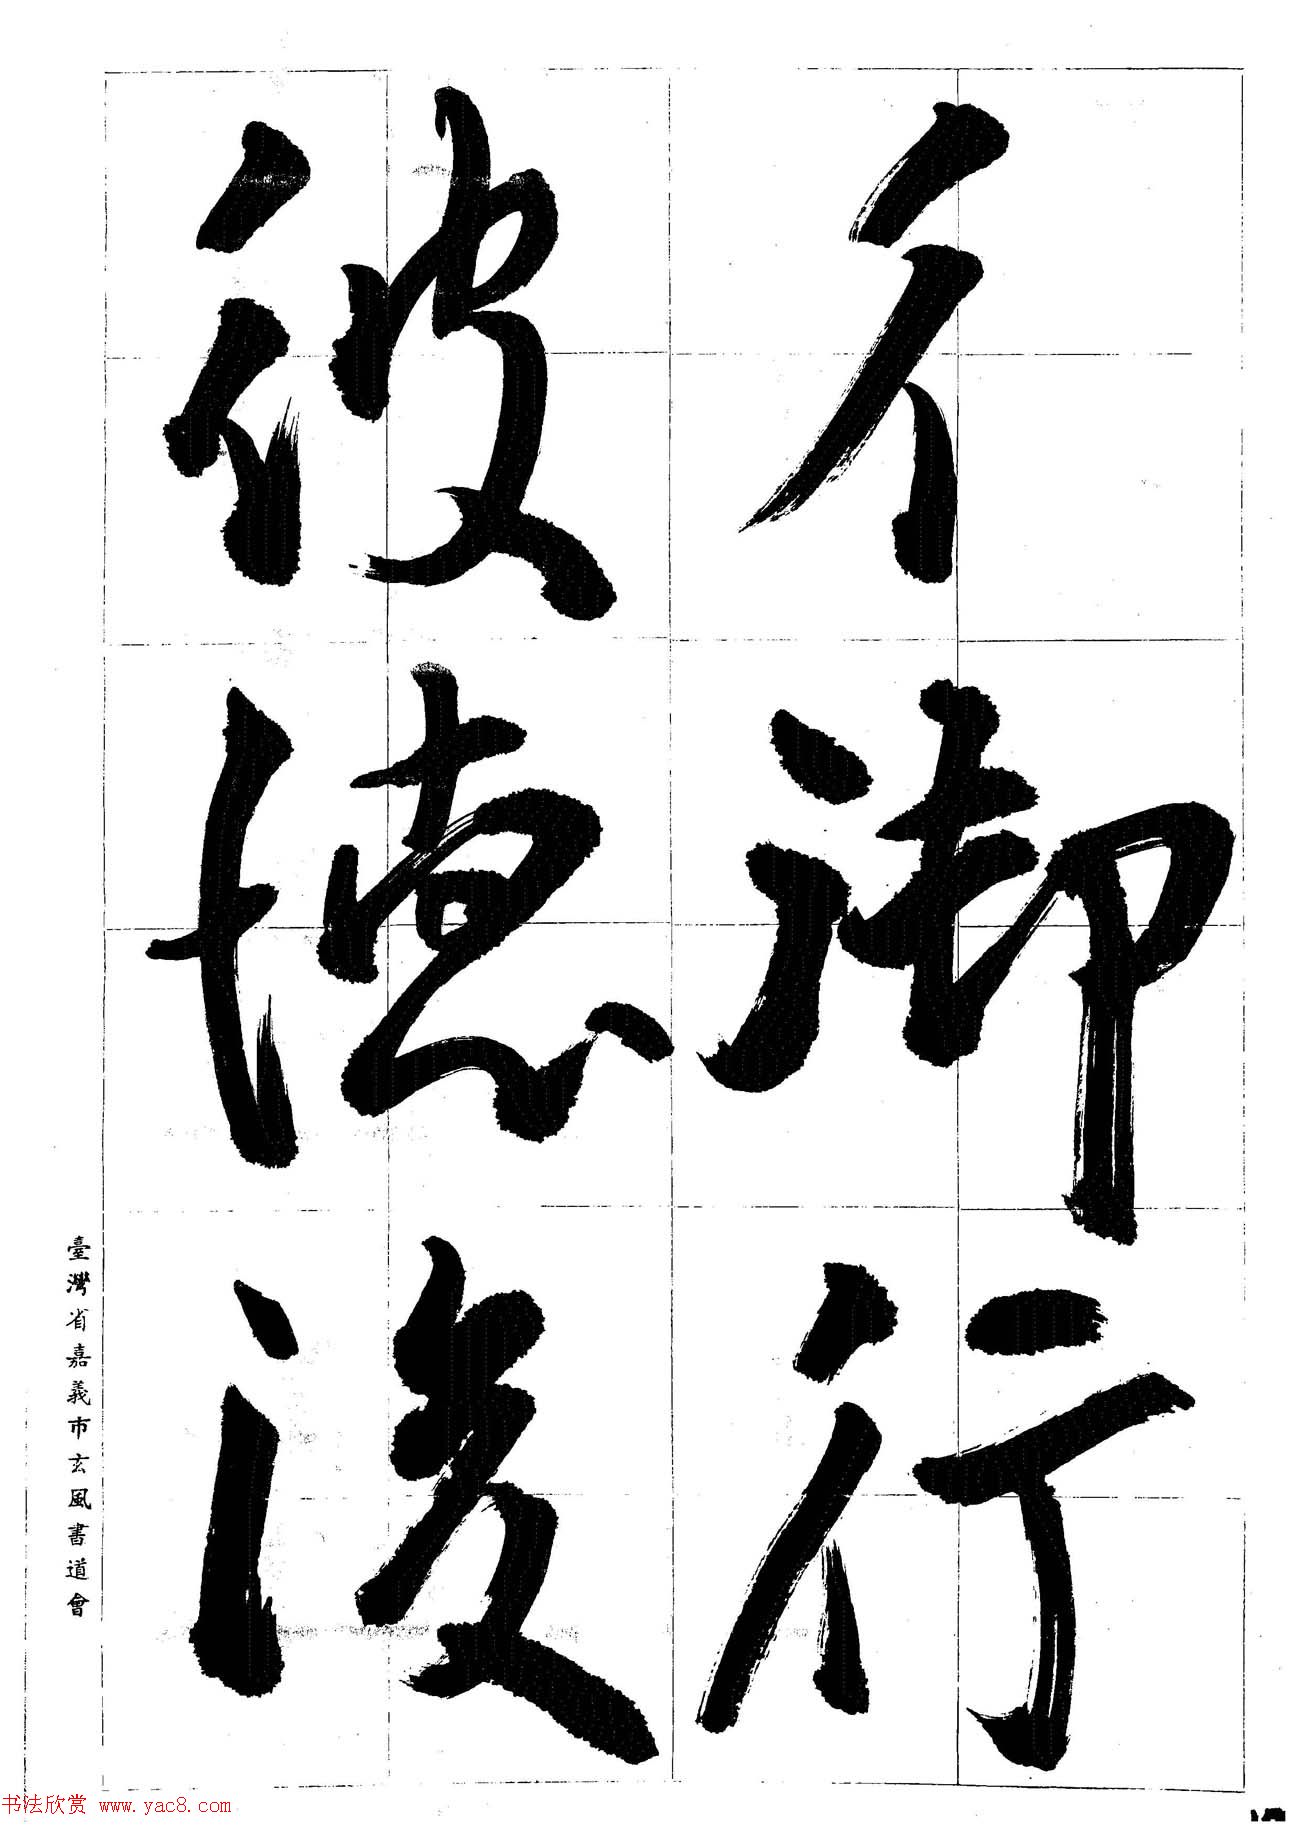 彳御行
彼德後
臺灣省嘉義市玄風書道會
书法欣赏 www.yac8.com